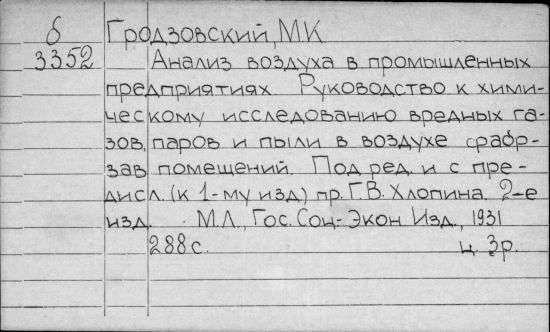 б Гродзовский, МК
3352 Анализ воздуха в промышленных
предприятиях. Руководство к хими-
ческому исследованию вредных га-
зов, паров и пыли в воздухе фабр-
зав помещений. Под ред. и с пре-
дисл. (к 1-му изд) пр. Г.В. Хлопина. 2-е
изд. М.Л., Гос. Соц-Экон. Изд., 1931
288 с. ц. 3р.